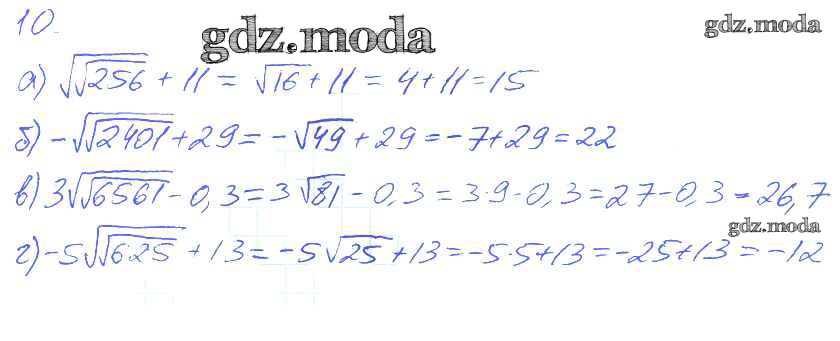 10.
gdz.moda
gdz.moda
а) √√256 + 11 = √16 + 11 = 4 + 11 = 15
б) -√√2401 + 29 = -√49 + 29 = -7 + 29 = 22
в) 3√√6561 - 0,3 = 3√81 - 0,3 = 3·9 - 0,3 = 27 - 0,3 = 26,7
gdz.moda
г) -5√√625 + 13 = -5√25 + 13 = -5·5 + 13 = -25 + 13 = -12